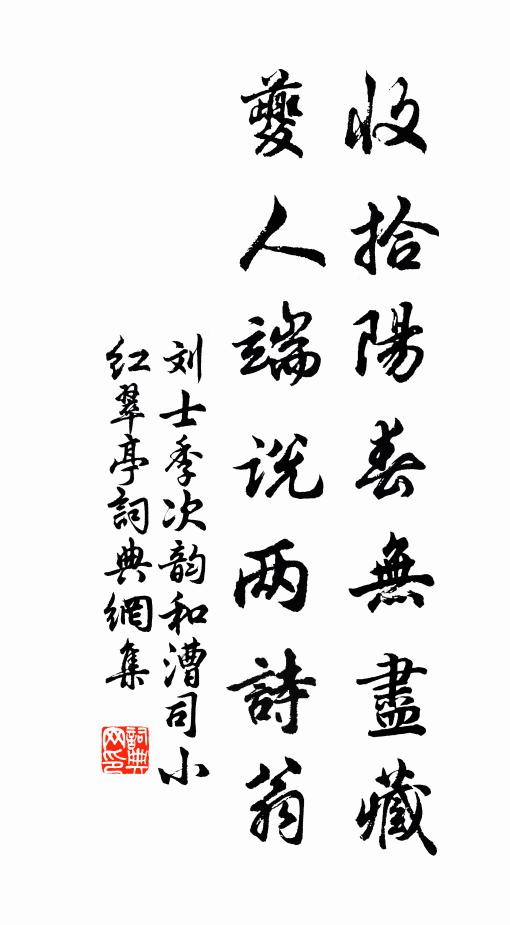 收拾陽春無盡藏
夔人端说两詩翁
刘士季次韵和漕司小
红翠亭詞典網集
詞典网印